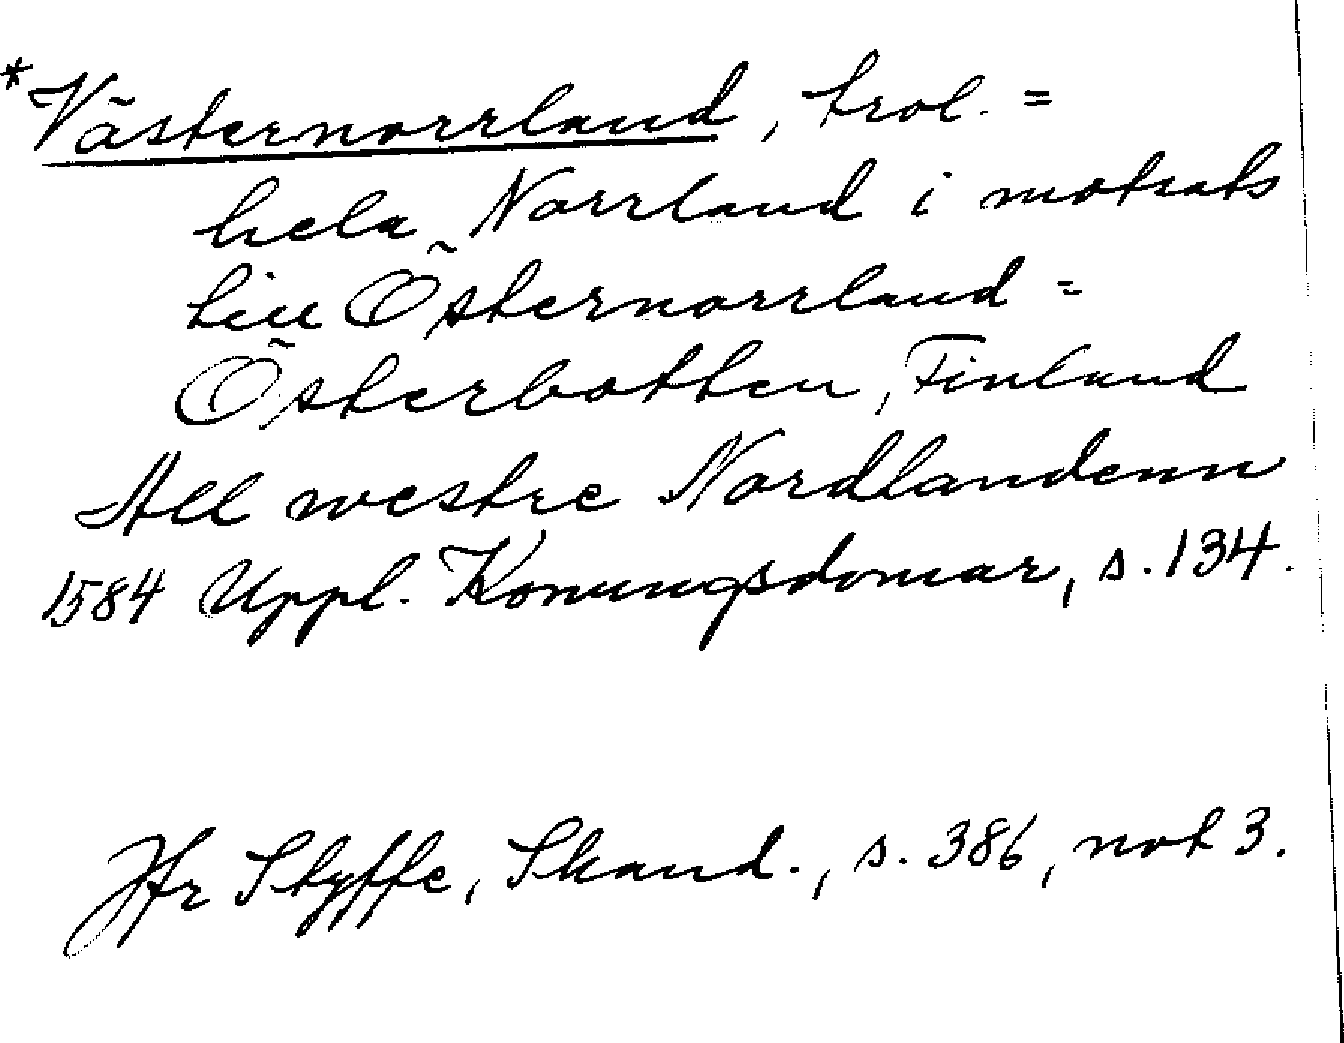 *Västernorrland, trol. =
hela Norrland i motsats
till Östernorrland =
Österbotten, Finland
All westre Nordlandenn
1584 Uppl. Konungsdomar, s. 134.
Jfr Styffe, Skand., s. 386, not 3.